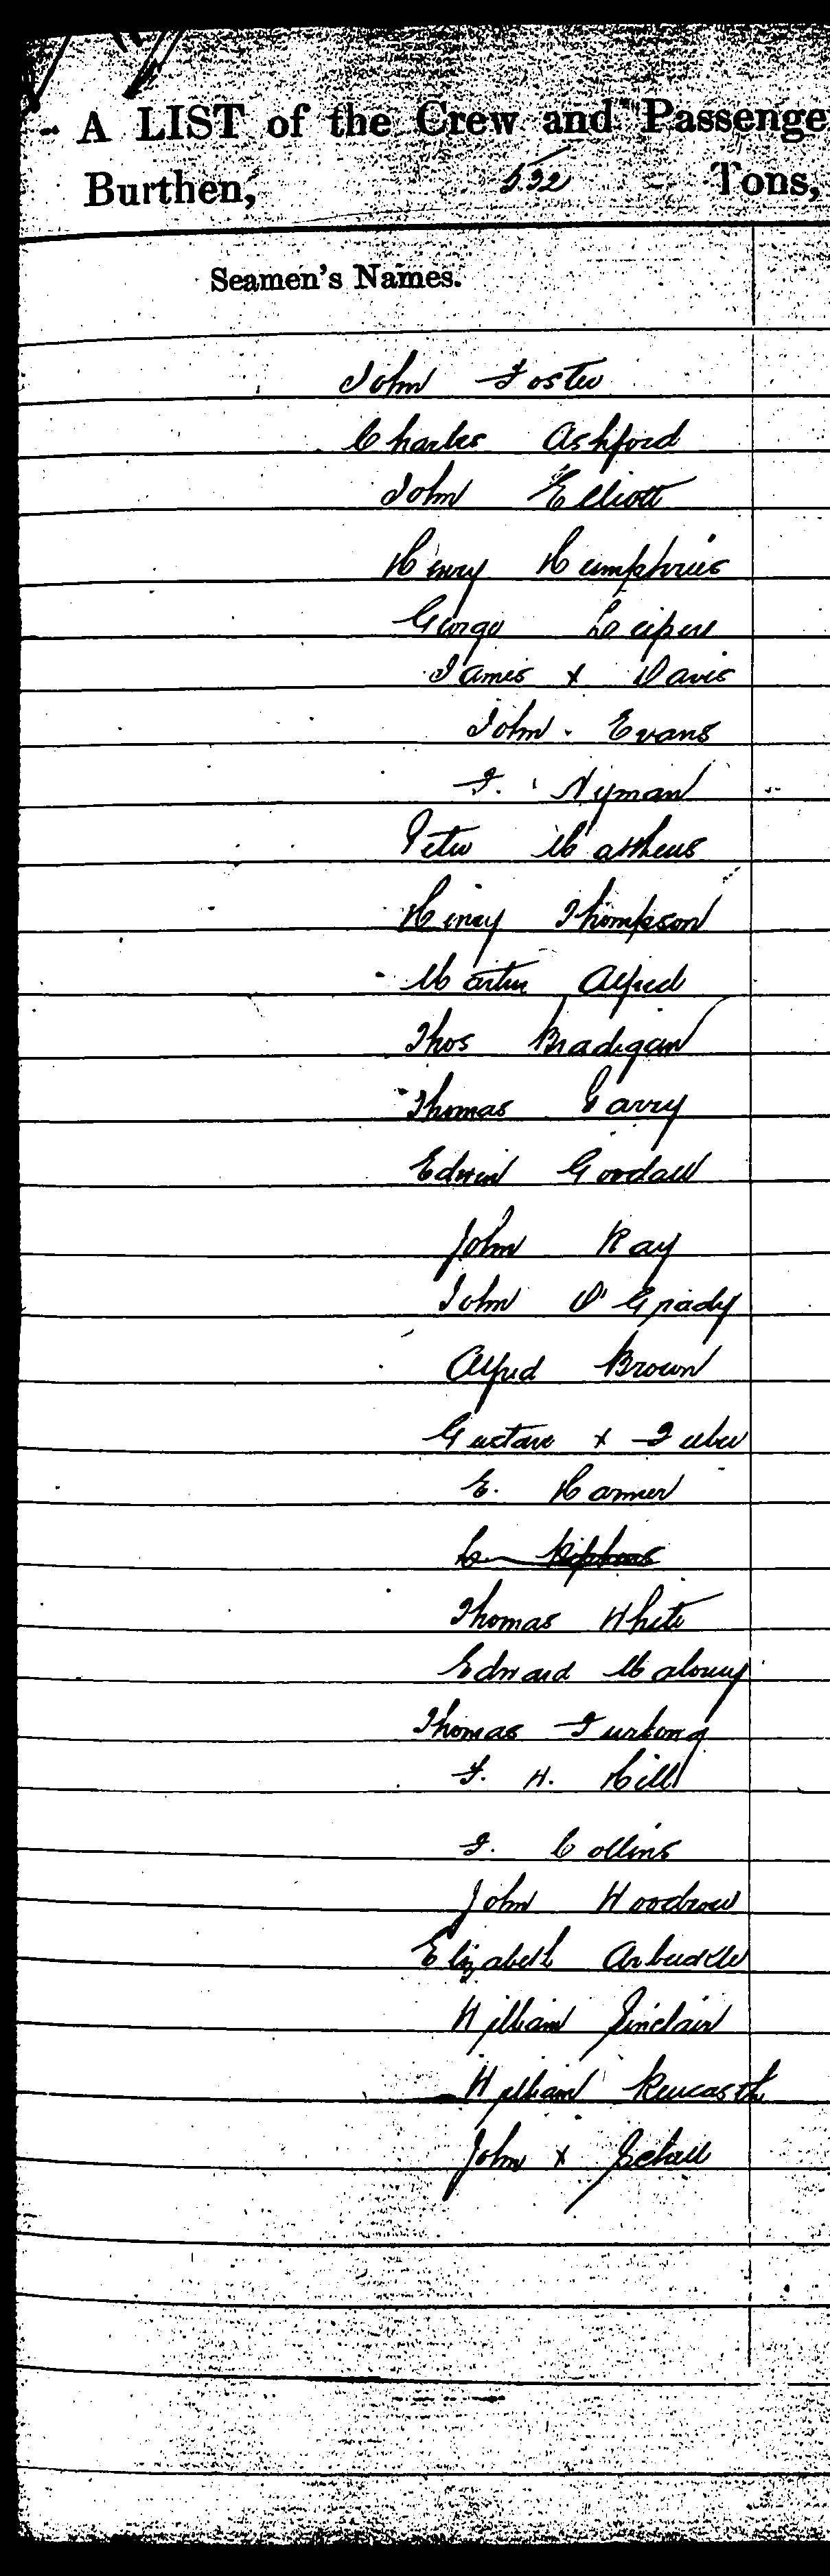 A LIST of the Crew and Passenge
Burthen, 532 Tons,
Seamen's Names.
John Foster
Charles Ashford
John Elliott
Henry Humphries
George
James x Davis
John Evans
F. Nyman
Peter Matthews
Henry Thompson
Martin Alfred
Thos Bradigan
Thomas Garry
Edwin Goodall
John Ray
John O'Grady
Alfred Brown
Gustave x
E. Harmer
Thomas White
Edward Malouy
Thomas Furlong
F. H. Hill
F. Collins
John Woodrow
Elizabeth Arbuckle
William Sinclair
William
John x